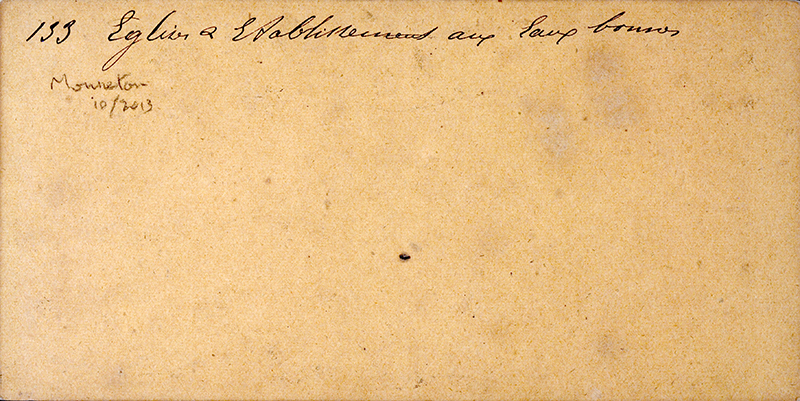 133 Eglise & Etablissement aux Eaux bonnes
Mourreton
10/2013